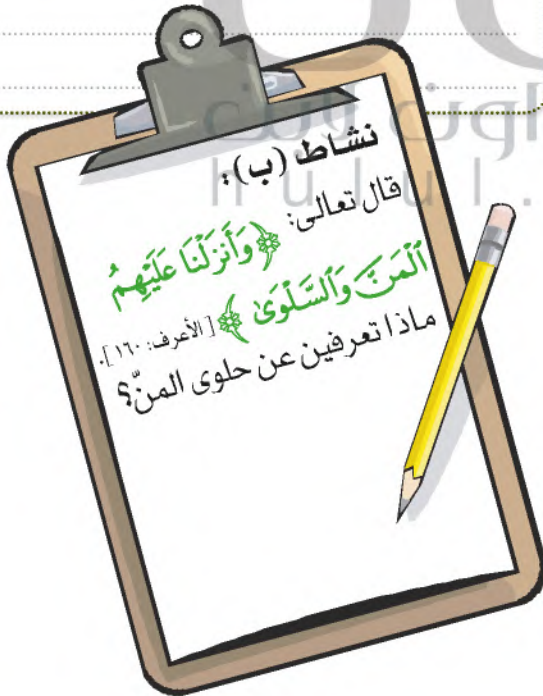 نشاط (ب):
قال تعالى: ﴿وَأَنزَلْنَا عَلَيْهِمُ
ٱلْمَنَّ وَٱلسَّلْوَىٰ﴾ [الأعرف: ١٦٠].
ماذا تعرفين عن حلوى المنّ؟
hulul.